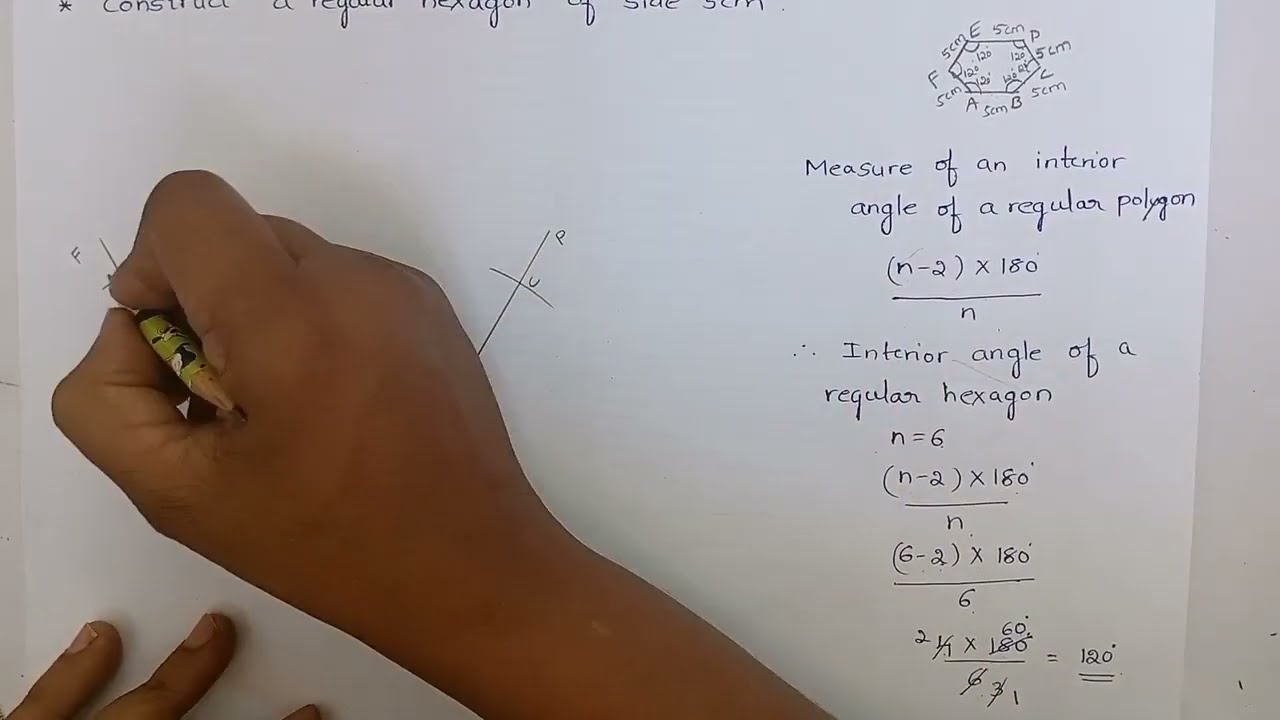 * Construct a regular hexagon of side 5cm.
E 5cm D
5cm 120° 120° 5cm
F 120° 120° C
5cm 120° 120° 5cm
A 5cm B
Measure of an interior
angle of a regular polygon
(n-2) × 180°
n
∴ Interior angle of a
regular hexagon
n=6
(n-2) × 180°
n
(6-2) × 180°
6
2 4 × 180° 60° = 120°
6 3 1
F
P
C